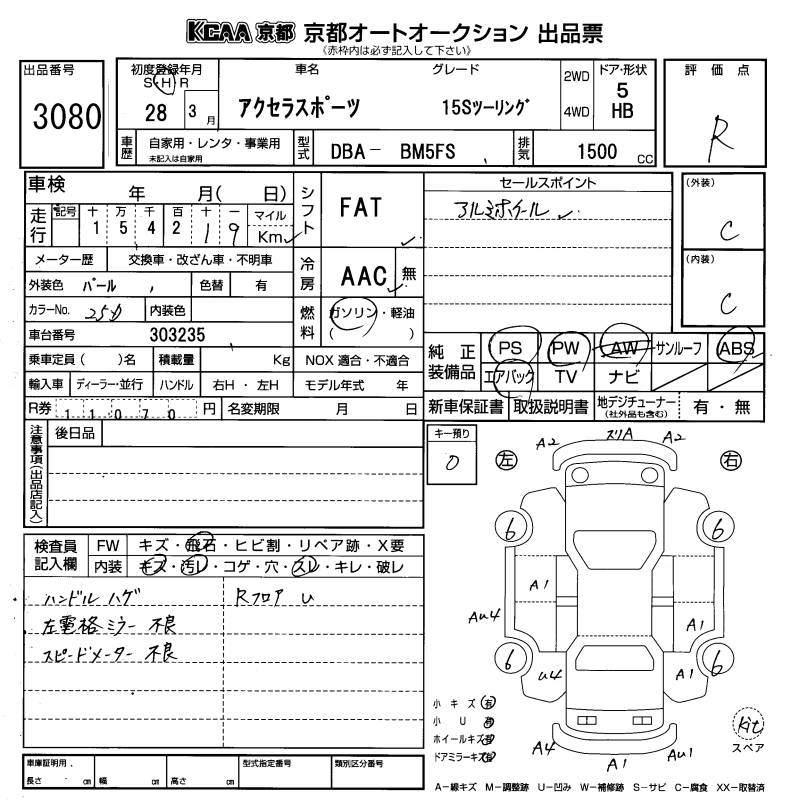 KCAA 京都 京都オートオークション 出品票
《赤枠内は必ず記入して下さい》
出品番号
3080
初度登録年月
S・H・R
28 3月
車名
アクセラスポーツ
グレード
15Sツーリング
2WD
4WD
ドア・形状
5
HB
評価点
R
車歴
自家用・レンタ・事業用
未記入は自家用
型式
DBA－ BM5FS
排気
1500 CC
車検 年 月( 日)
走行
記号 十 万 千 百 十 一
1 5 4 2 1 9
マイル
Km
メーター歴 交換車・改ざん車・不明車
外装色 パール
色替 有
カラーNo. 25D
内装色
車台番号 303235
乗車定員( )名 積載量 Kg
NOX 適合・不適合
輸入車 ディーラー・並行 ハンドル 右H・左H
モデル年式 年
R券 11070 円
名変期限 月 日
シフト
FAT
冷房
AAC
無
燃料
ガソリン・軽油
( )
セールスポイント
アルミホイール
(外装)
C
(内装)
C
純正装備品
PS PW AW サンルーフ ABS
エアバック TV ナビ
新車保証書 取扱説明書 地デジチューナー
(社外品も含む)
有・無
注意事項(出品店記入)
後日品
キー預り
0
左
右
A2 スリA A2
6 6
A1
AU4
A1
6 6
U4 A1
A4 A1 AU1
検査員記入欄
FW キズ・飛石・ヒビ割・リペア跡・X要
内装 キズ・汚レ・コゲ・穴・スレ・キレ・破レ
ハンドル ハゲ
Rフロア U
左電格ミラー 不良
スピードメーター 不良
小キズ 有
小U 有
ホイールキズ 有
ドアミラーキズ 有
kit
スペア
車庫証明用
長さ cm 幅 cm 高さ cm
型式指定番号
類別区分番号
A－線キズ M－調整跡 U－凹み W－補修跡 S－サビ C－腐食 XX－取替済